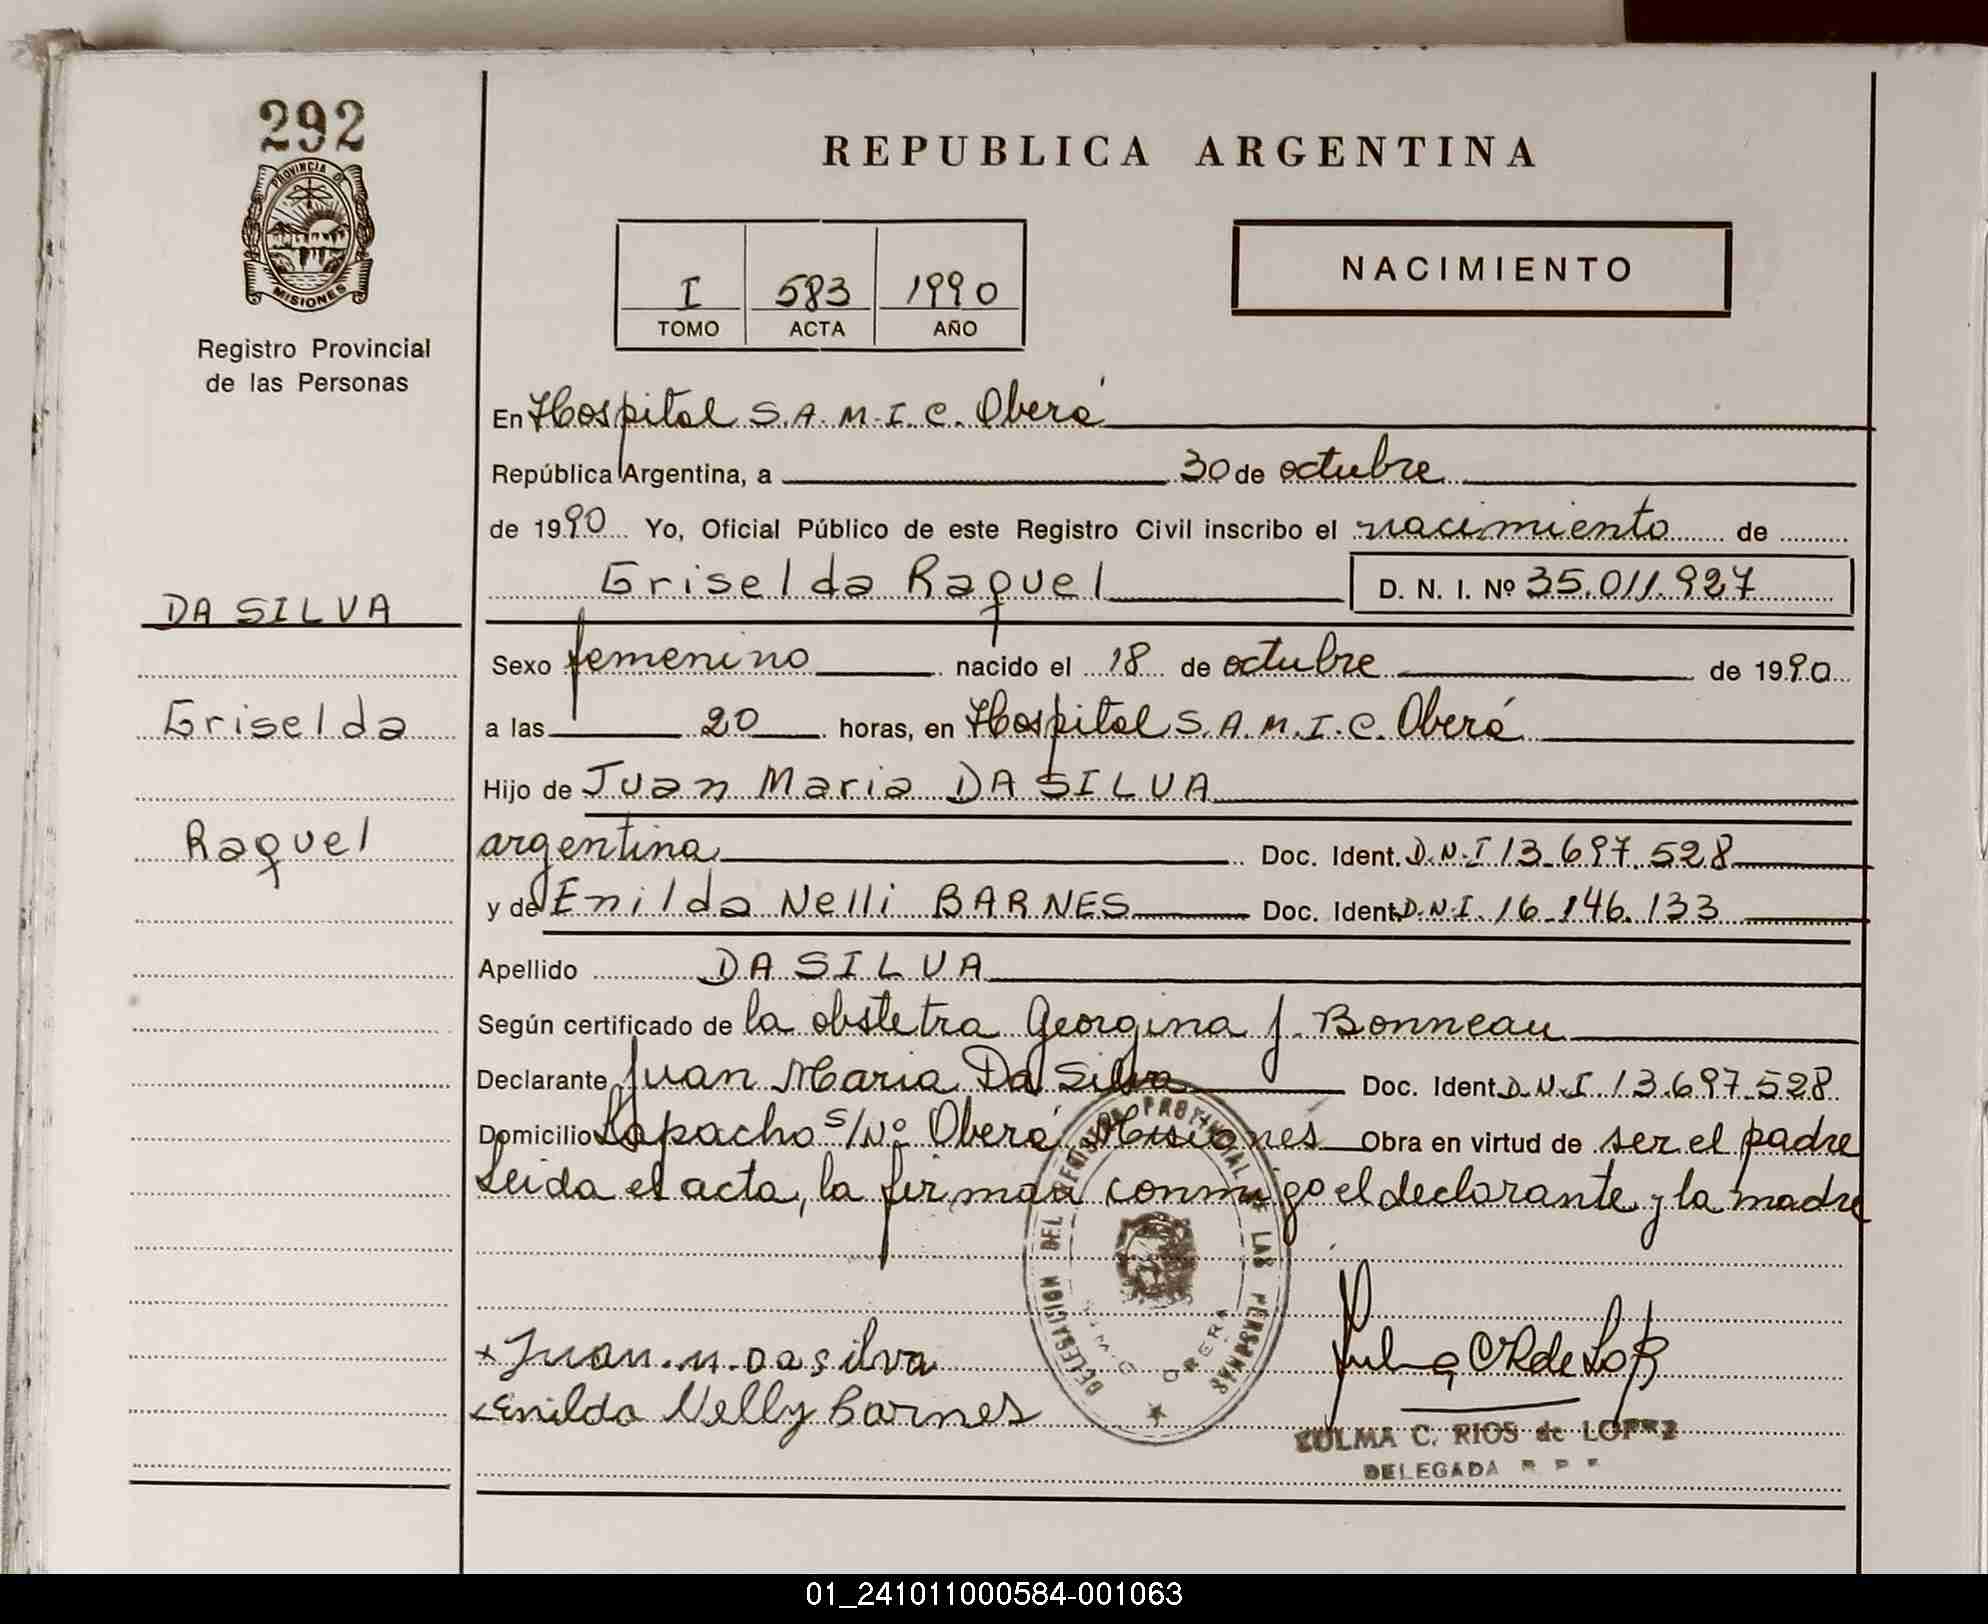 292
PROVINCIA DE
MISIONES
Registro Provincial
de las Personas
REPUBLICA ARGENTINA
I 583 1990
TOMO ACTA AÑO
NACIMIENTO
En Hospital S.A.M.I.C. Oberá
República Argentina, a 30 de octubre
de 1990 Yo, Oficial Público de este Registro Civil inscribo el nacimiento de
Griselda Raquel D. N. I. Nº 35.011.927
DA SILVA
Griselda
Raquel
Sexo femenino nacido el 18 de octubre de 1990
a las 20 horas, en Hospital S.A.M.I.C. Oberá
Hijo de Juan Maria DA SILVA
argentina Doc. Ident. D.N.I 13.697.528
y de Enilda Nelli BARNES Doc. Ident. D.N.I. 16.146.133
Apellido DA SILVA
Según certificado de la obstetra Georgina J. Bonneau
Declarante Juan Maria Da Silva Doc. Ident. D.N.I 13.697.528
Domicilio Lapacho s/Nº Oberá Misiones Obra en virtud de ser el padre
Leida el acta, la firman conmigo el declarante y la madre
DELEGACION DEL REGISTRO PROVINCIAL LAS PERSONAS
OBERA
x Juan.M.Dasilva
x Enilda Nelly Barnes
ZULMA C. RIOS de LOPEZ
DELEGADA R. P. P.
01_241011000584-001063